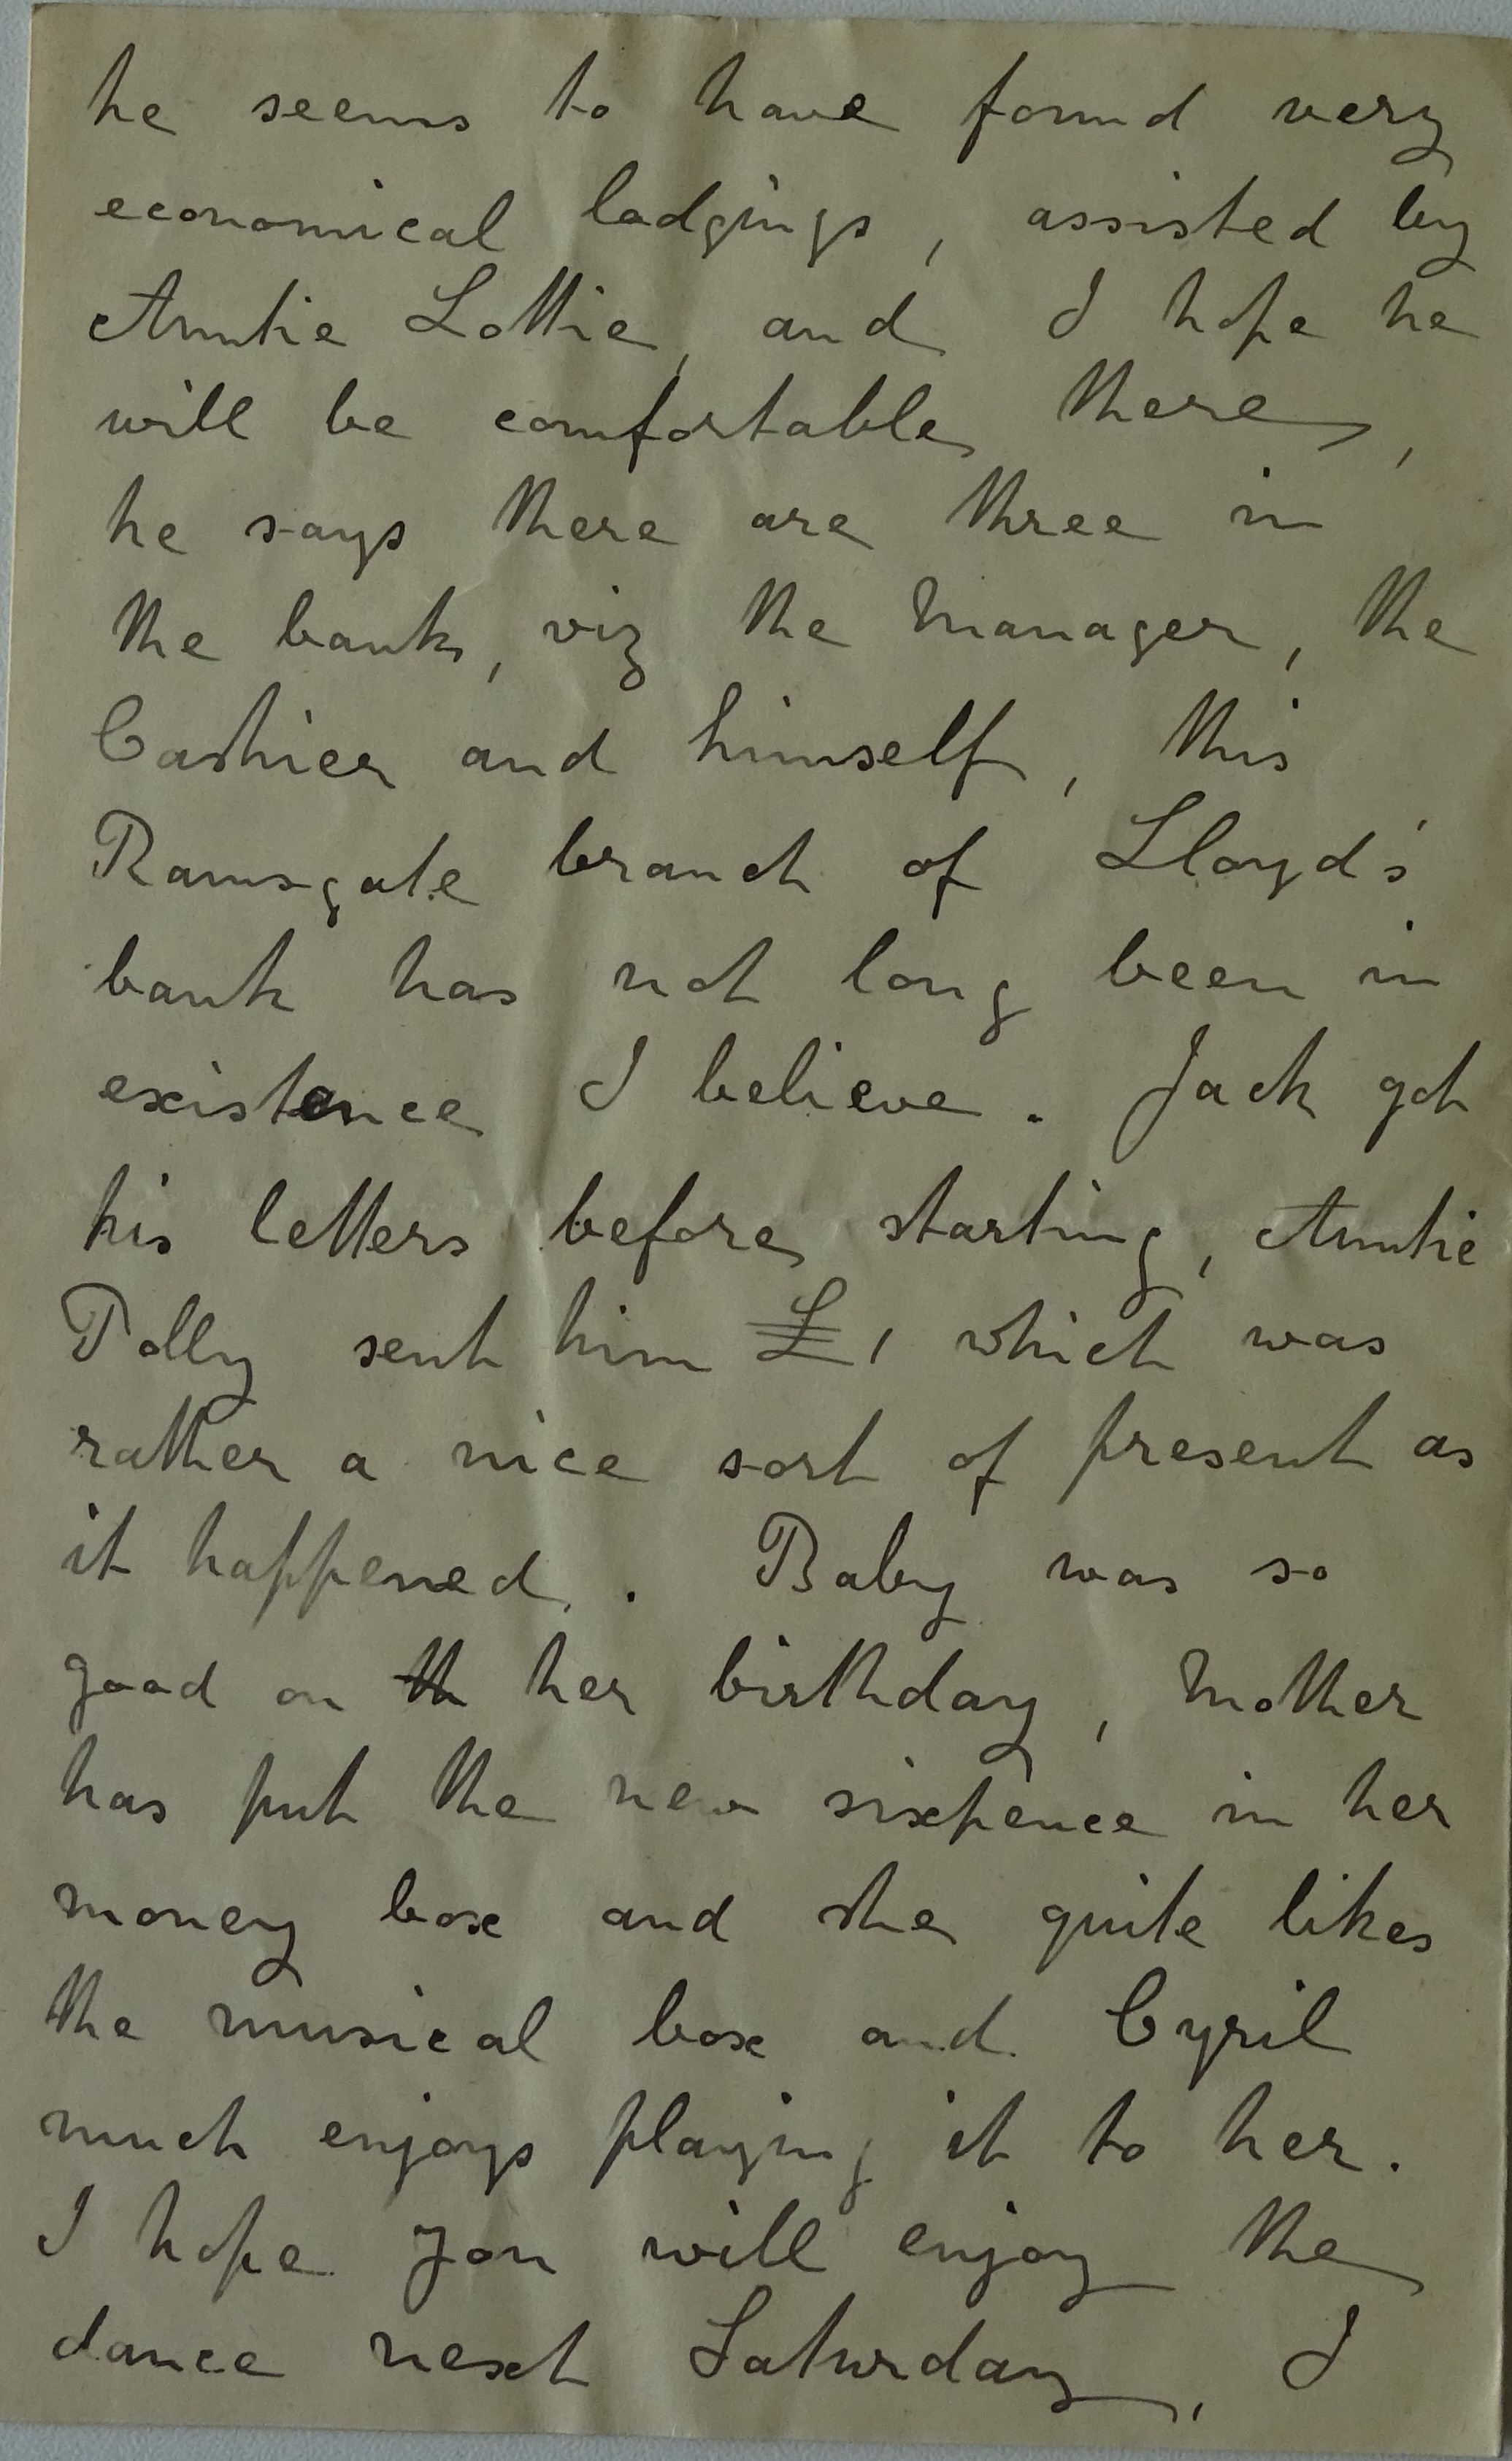 he seems to have found very
economical lodgings, assisted by
Auntie Lottie, and I hope he
will be comfortable there,
he says there are three in
the bank, viz the Manager, the
Cashier and himself, this
Ramsgate branch of Lloyd's
bank has not long been in
existence I believe. Jack got
his letters before starting, Auntie
Polly sent him £1 which was
rather a nice sort of present as
it happened. Baby was so
good on th her birthday, Mother
has put the new sixpence in her
money box and she quite likes
the musical box and Cyril
much enjoys playing it to her.
I hope you will enjoy the
dance next Saturday, I